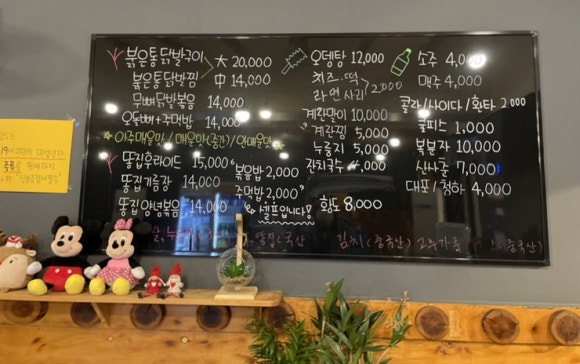 붉은통닭발구이 大 20,000
붉은통닭발찜 中 14,000
무뼈닭발볶음 14,000
오돌뼈+주먹밥 14,000
☆아주매운맛/매운맛(중간)/안매운맛☆
똥집후라이드 15,000
똥집기름장 14,000
똥집양념볶음 14,000
볶음밥 2,000
주먹밥 2,000
셀프입니다!
오뎅탕 12,000
치즈.떡
라면사리 2,000
계란말이 10,000
계란찜 5,000
누룽지 5,000
잔치국수
황도 8,000
소주 4,000
맥주 4,000
콜라/사이다/환타 2,000
쿨피스 1,000
복분자 10,000
산사춘 7,000
대포/청하 4,000
똥집(국산 김치(중국산) 고추가루 중국산)